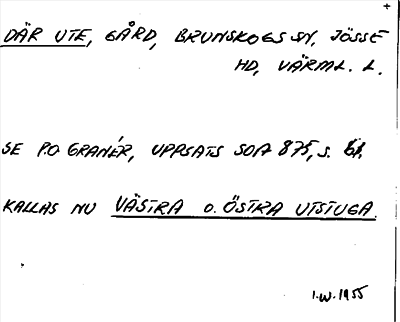 DÄR UTE, GÅRD, BRUNSKOGS SN, JÖSSE
HD, VÄRML. L.
SE P.O GRANÉR, UPPSATS SOA 875, S.
KALLAS NU VÄSTRA O. ÖSTRA UTSTUGA.
I.W. 1955